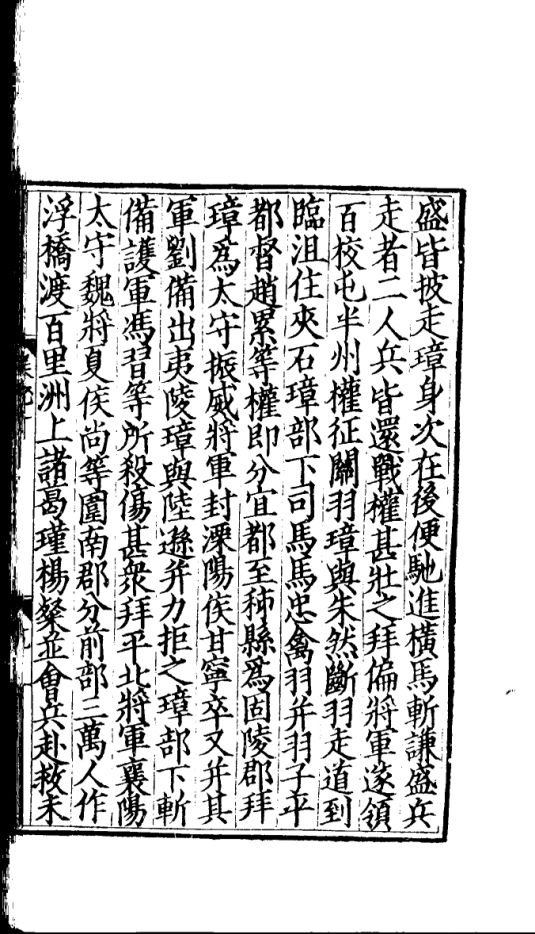 盛皆披走璋身次在後便馳進橫馬斬謙盛兵
走者二人兵皆還戰權甚壯之拜偏將軍遂領
百校屯半州權征關羽璋與朱然斷羽走道到
臨沮住夾石璋部下司馬馬忠禽羽并羽子平
都督趙累等權即分宜都至秭縣爲固陵郡拜
璋爲太守振威將軍封溧陽侯甘寧卒又并其
軍劉備出夷陵璋與陸遜并力拒之璋部下斬
備護軍馮習等所殺傷甚衆拜平北將軍襄陽
太守魏將夏侯尚等圍南郡分前部三萬人作
浮橋渡百里洲上諸葛瑾楊粲並會兵赴救未